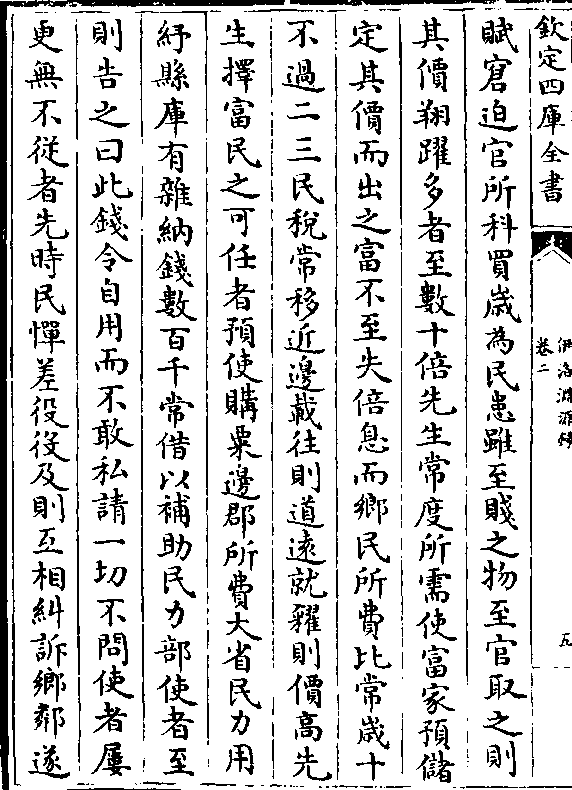 欽定四庫全書
伊洛淵源録
卷二
五
賦窘迫官所科買歲為民患雖至賤之物至官取之則
其價翔躍多者至數十倍先生常度所需使富家預儲
定其價而出之富不至失倍息而鄉民所費比常歲十
不過二三民稅常移近邊載往則道遠就糴則價高先
生擇富民之可任者預使購粟邊郡所費大省民力用
紓縣庫有雜納錢數百千常借以補助民力部使者至
則告之曰此錢令自用而不敢私請一切不問使者屢
更無不從者先時民憚差役役及則互相糾訴鄉鄰遂